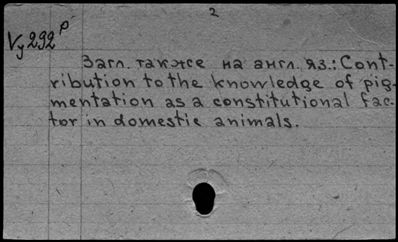 2
Vy292ᵖ
Загл. также на англ. яз.: Cont-
ribution to the knowledge of pig-
mentation as a constitutional fac-
tor in domestic animals.